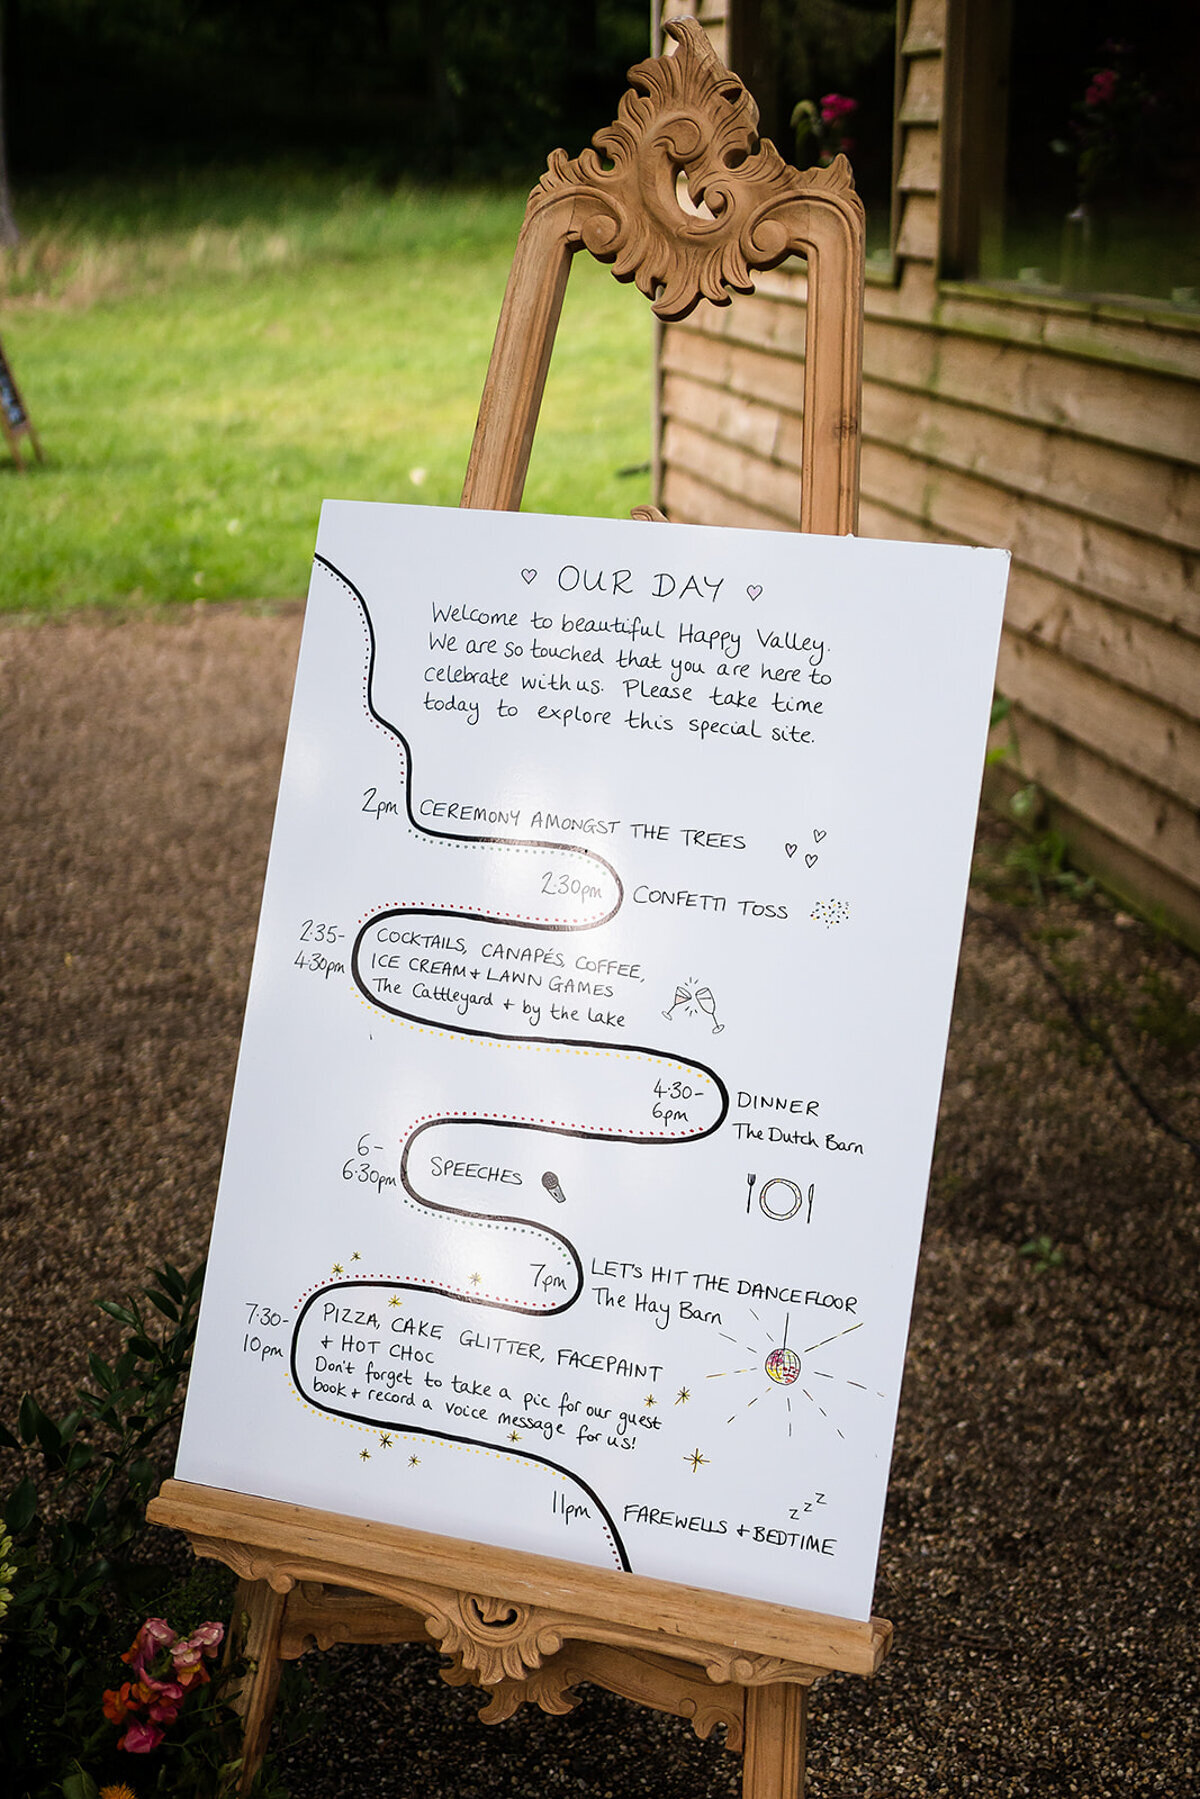 ♡ OUR DAY ♡
Welcome to beautiful Happy Valley.
We are so touched that you are here to
celebrate with us. Please take time
today to explore this special site.
2pm CEREMONY AMONGST THE TREES
2·30pm CONFETTI TOSS
2·35-
4·30pm
COCKTAILS, CANAPÉS, COFFEE,
ICE CREAM + LAWN GAMES
The Cattleyard + by the lake
4·30-
6pm
DINNER
The Dutch Barn
6-
6·30pm
SPEECHES
7pm
LET'S HIT THE DANCEFLOOR
The Hay Barn
7·30-
10pm
PIZZA, CAKE, GLITTER, FACEPAINT
+ HOT CHOC
Don't forget to take a pic for our guest
book + record a voice message for us!
11pm FAREWELLS + BEDTIME
z z Z